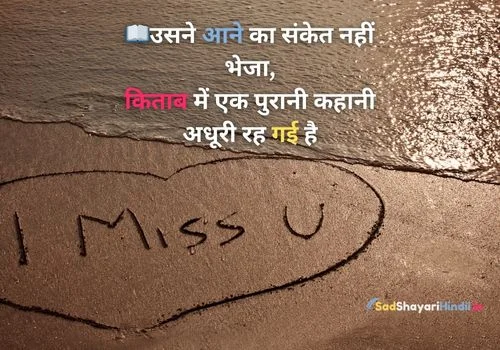 📖उसने आने का संकेत नहीं
भेजा,
किताब में एक पुरानी कहानी
अधूरी रह गई है
I Miss U
SadShayariHindii.in